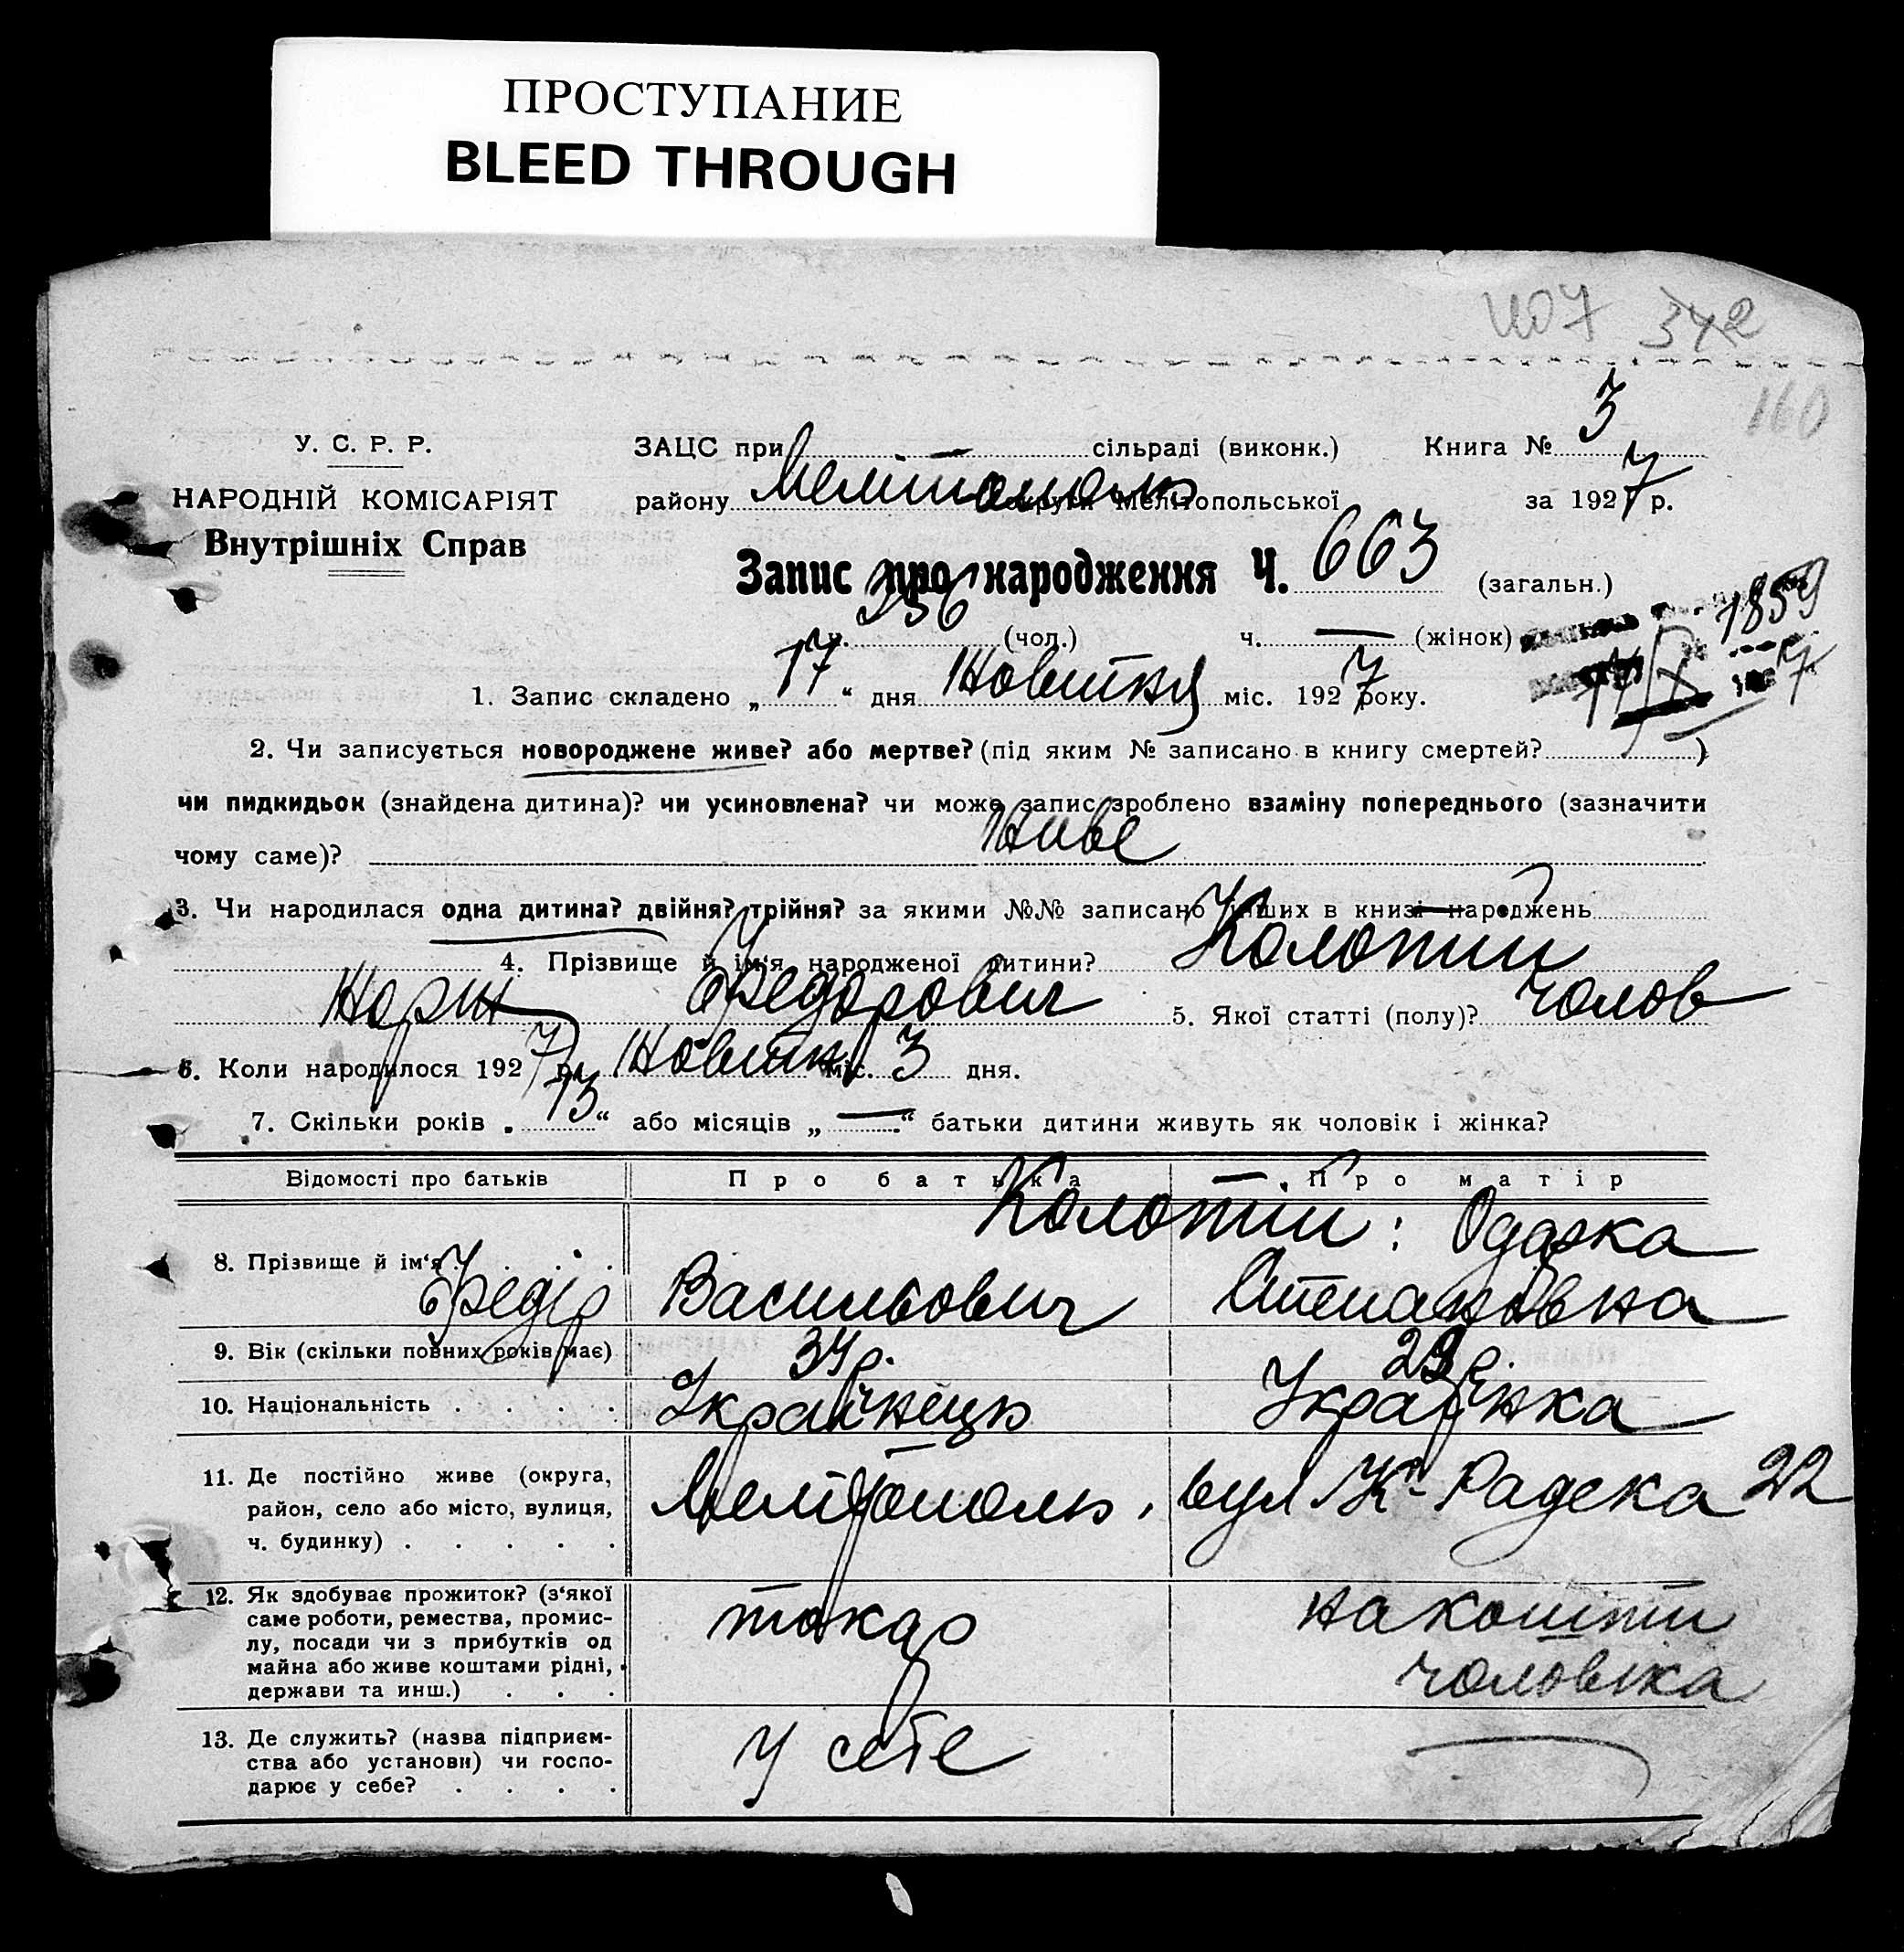 ПРОСТУПАНИЕ
BLEED THROUGH
342
160
У. С. Р. Р.
НАРОДНІЙ КОМІСАРІЯТ
Внутрішніх Справ
ЗАЦС при — сільраді (виконк.) Книга № 3
району Мелітополь округи Мелітопольської за 1927 р.
Запис про народження Ч. 663 (загальн.)
ч. 336 (чол.) ч. — (жінок)
1859
1. Запис складено „17“ дня Новитня міс. 1927 року.
2. Чи записується новороджене живе? або мертве? (під яким № записано в книгу смертей? )
чи пидкидьок (знайдена дитина)? чи усиновлена? чи може запис зроблено взаміну попереднього (зазначити
чому саме)? Живе
3. Чи народилася одна дитина? двійня? трійня? за якими №№ записано инших в книзі народжень —
4. Прізвище й ім'я народженої дитини? Колотий
Федорович 5. Якої статті (полу)? чолов
6. Коли народилося 1927 р. Новитня міс. 3 дня.
7. Скільки років „13“ або місяців „—“ батьки дитини живуть як чоловік і жінка?
Відомості про батьків Про батька Про матір
8. Прізвище й ім'я . . . . Колотий: Одарка
Федір Васильович Степановна
9. Вік (скільки повних років має) 34 р. 29 р.
10. Національність . . . . Українець Українка
11. Де постійно живе (округа,
район, село або місто, вулиця,
ч. будинку) . . . . . Мелітополь, вул К- Радека 22
12. Як здобуває прожиток? (з'якої
саме роботи, ремества, промис-
лу, посади чи з прибутків од
майна або живе коштами рідні,
держави та инш.) . . . токар на кошти
чоловіка
13. Де служить? (назва підприєм-
ства або установи) чи госпо-
дарює у себе? . . . . у себе —